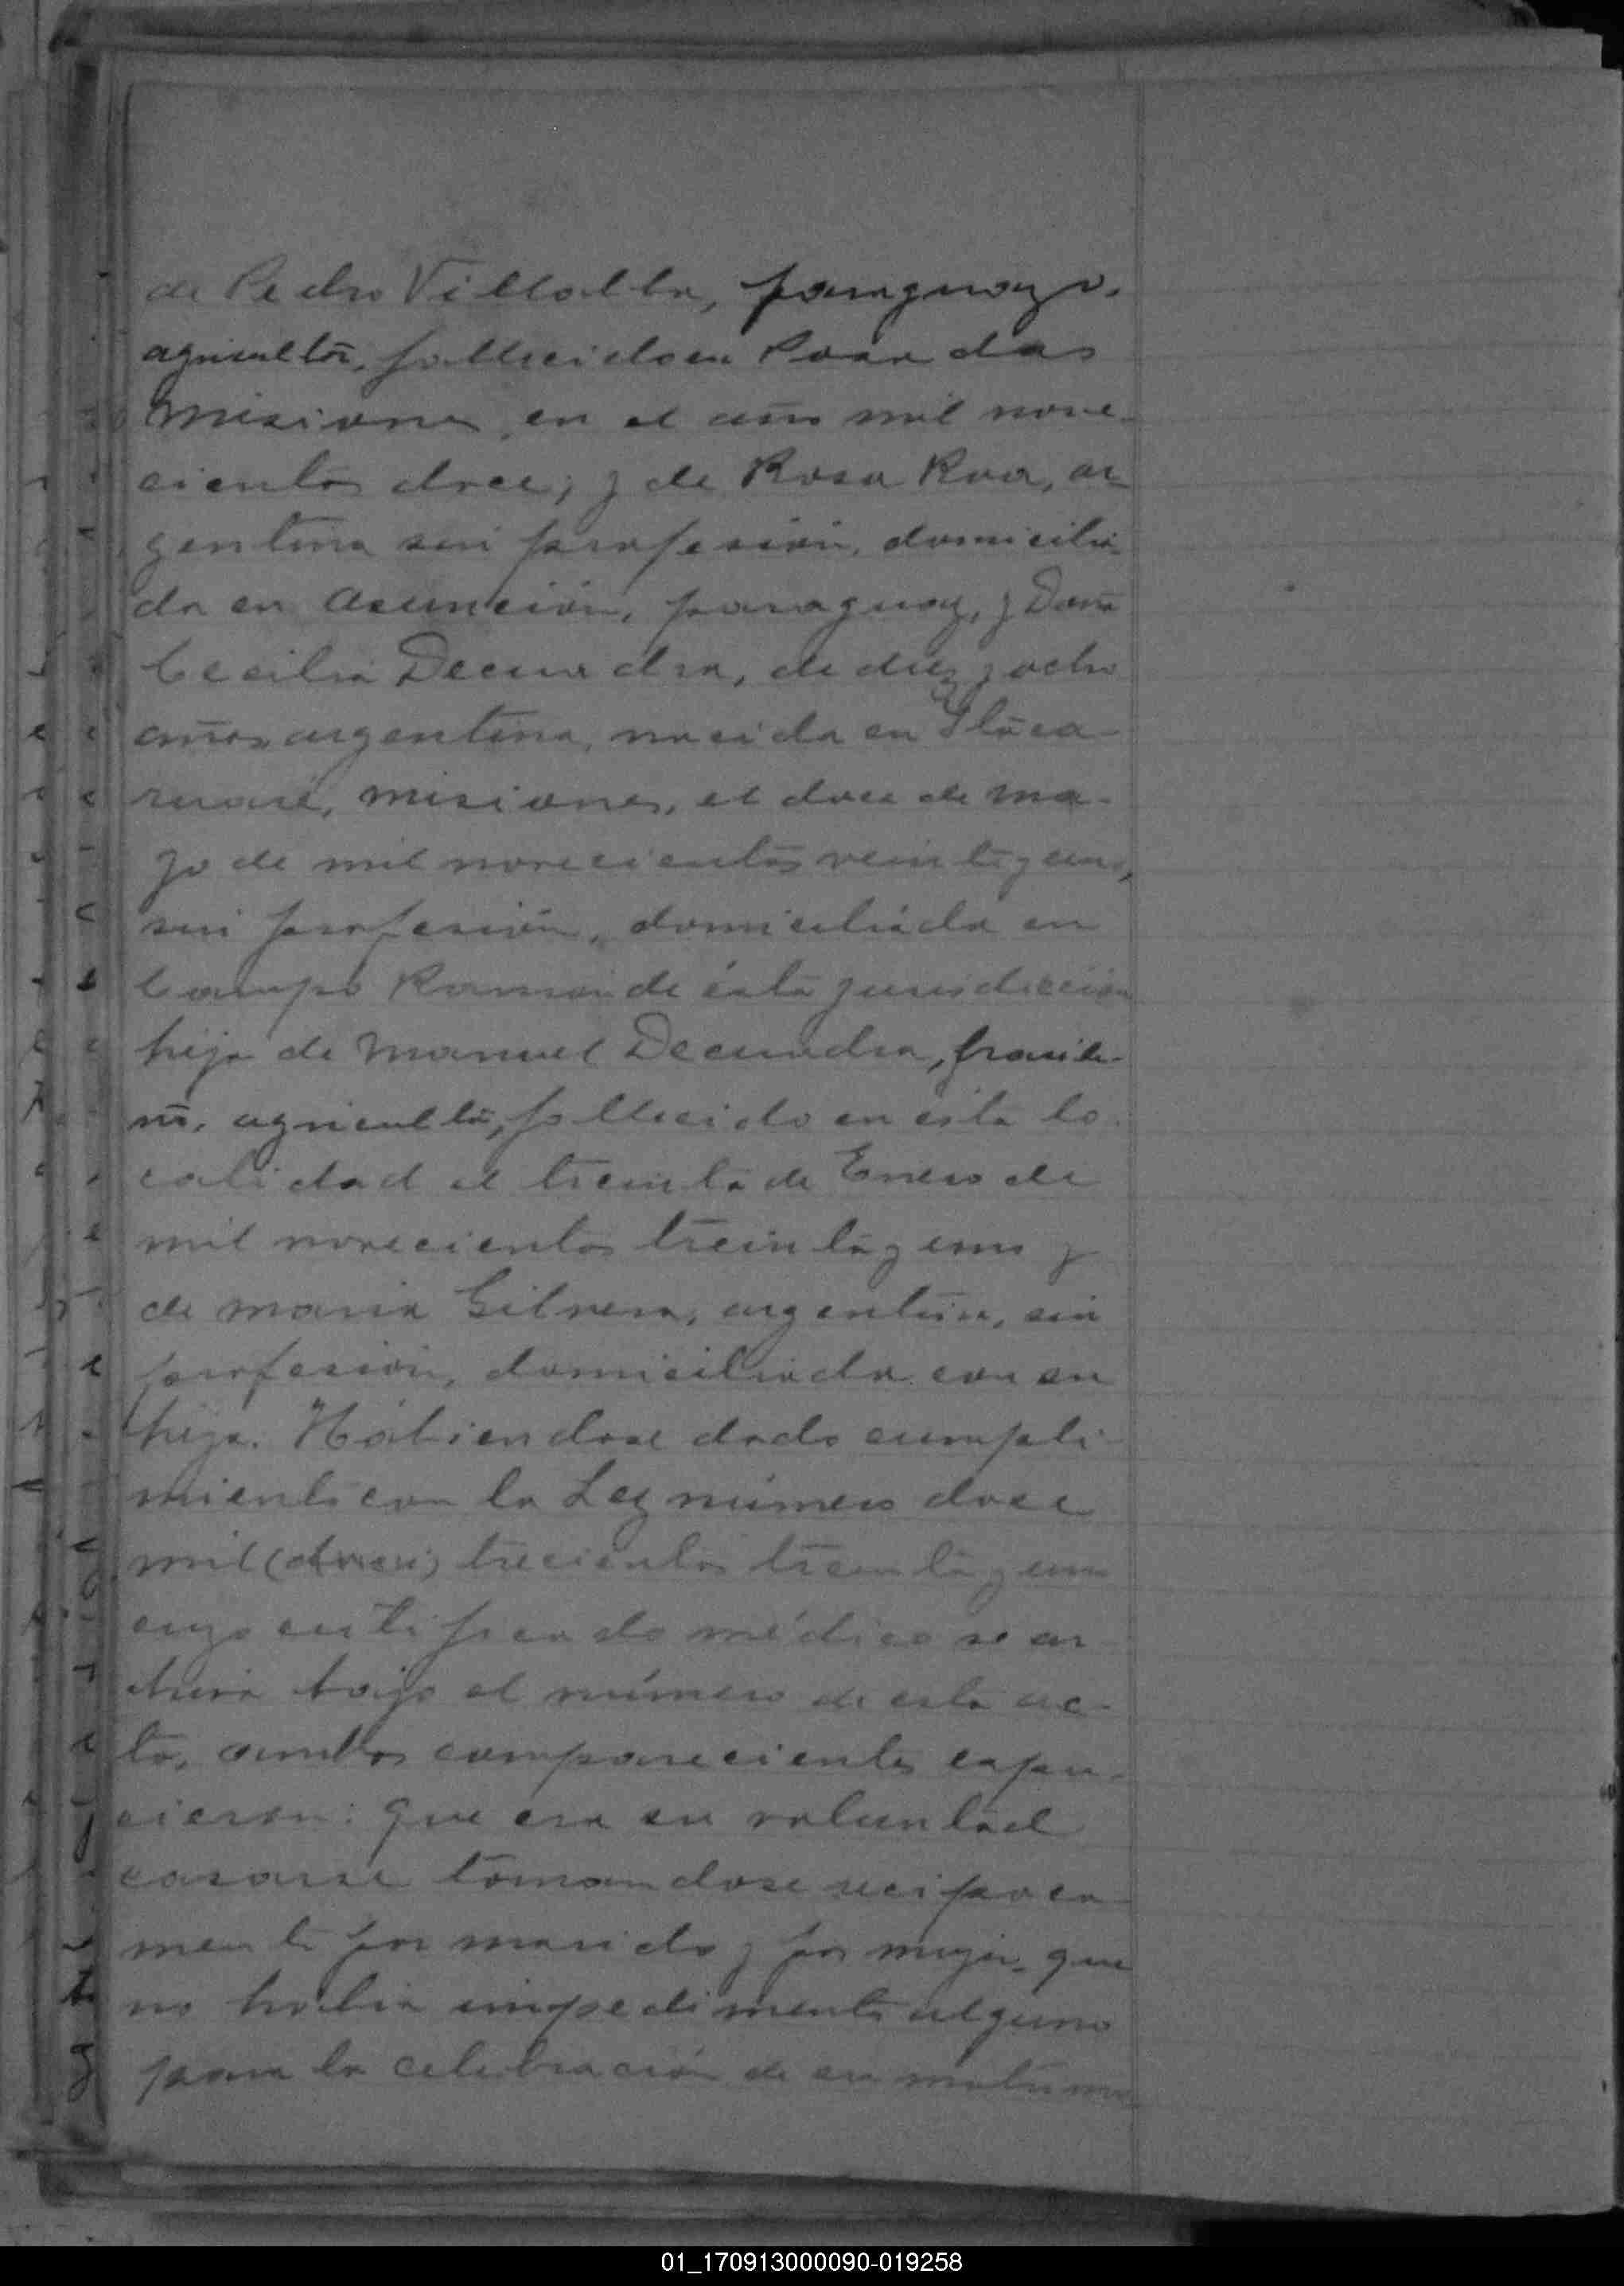 de Pedro Villalba, paraguayo,
agricultor, fallecido en Posadas
Misiones, en el año mil nove-
cientos doce; y de Rosa Roa, ar-
gentina sin profesión, domicilia-
da en Asunción, paraguay, y Doña
Cecilia Decuadra, de diez y ocho
años argentina, nacida en Itaca-
ruaré, misiones, el doce de ma-
yo de mil novecientos veintiyuno,
sin profesión, domiciliada en
Campo Ramón de ésta jurisdicción
hija de Manuel Decuadra, brasile-
ño, agricultor, fallecido en esta lo-
calidad el treinta de Enero de
mil novecientos treinta y uno y
de maria Silvera, argentina, sin
profesión, domiciliada con su
hija. Habiendose dado cumpli-
miento con la Ley número doce
mil trecientos treinta y uno
cuyo certificado médico se ar-
chiva bajo el número de esta ac-
ta, ambos comparecientes expu-
cieron: Que era su voluntad
casarse tomandose reciproca-
mente por marido y por mujer, que
no habia impedimento alguno
para la celebración de su matrimo-
01_170913000090-019258